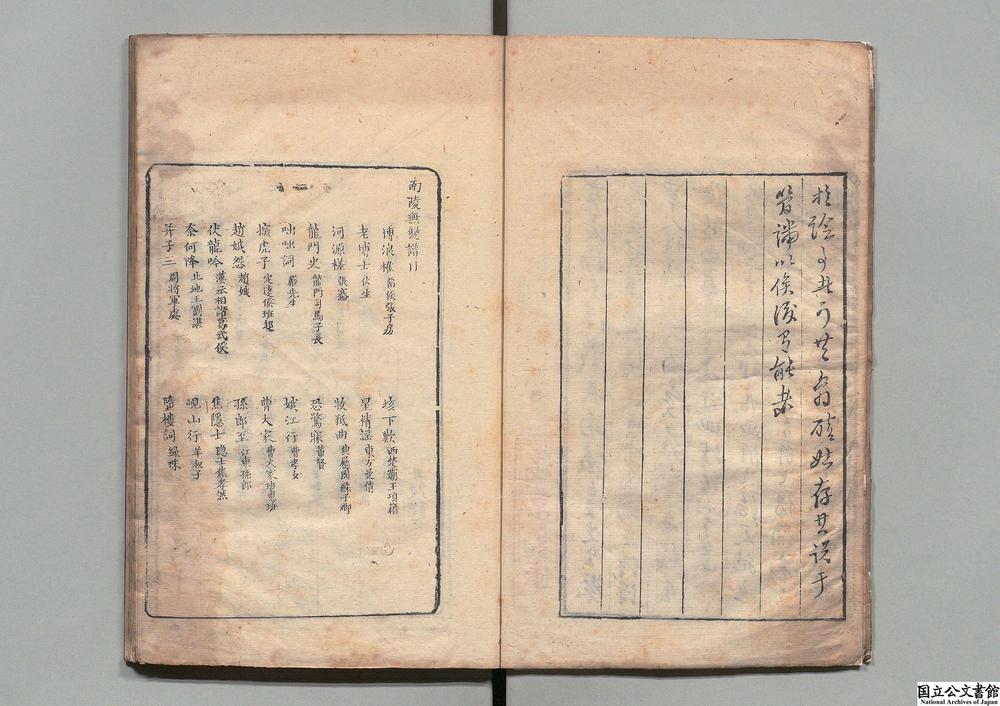 存其說于
簡端以俟後之能者
南陵無雙譜目
博浪椎 留侯張子房
垓下歎 西楚霸王項籍
老博士 伏生
星精謠 東方曼倩
河源槎 張騫
牧羝曲 典屬國蘇子卿
龍門史 龍門司馬子長
恐驚寐 董賢
咄咄詞 嚴先生
娥江行 曹孝女
探虎子 定遠侯班超
曹大家 曹大家班惠班
趙娥怨 趙娥
孫郎至 江東孫郎
伏龍吟 漢丞相諸葛武侯
焦隱士 隱士焦孝然
奈何降 北地王劉諶
峴山行 羊叔子
并子三 周將軍處
墮樓詞 綠珠
国立公文書館
National Archives of Japan